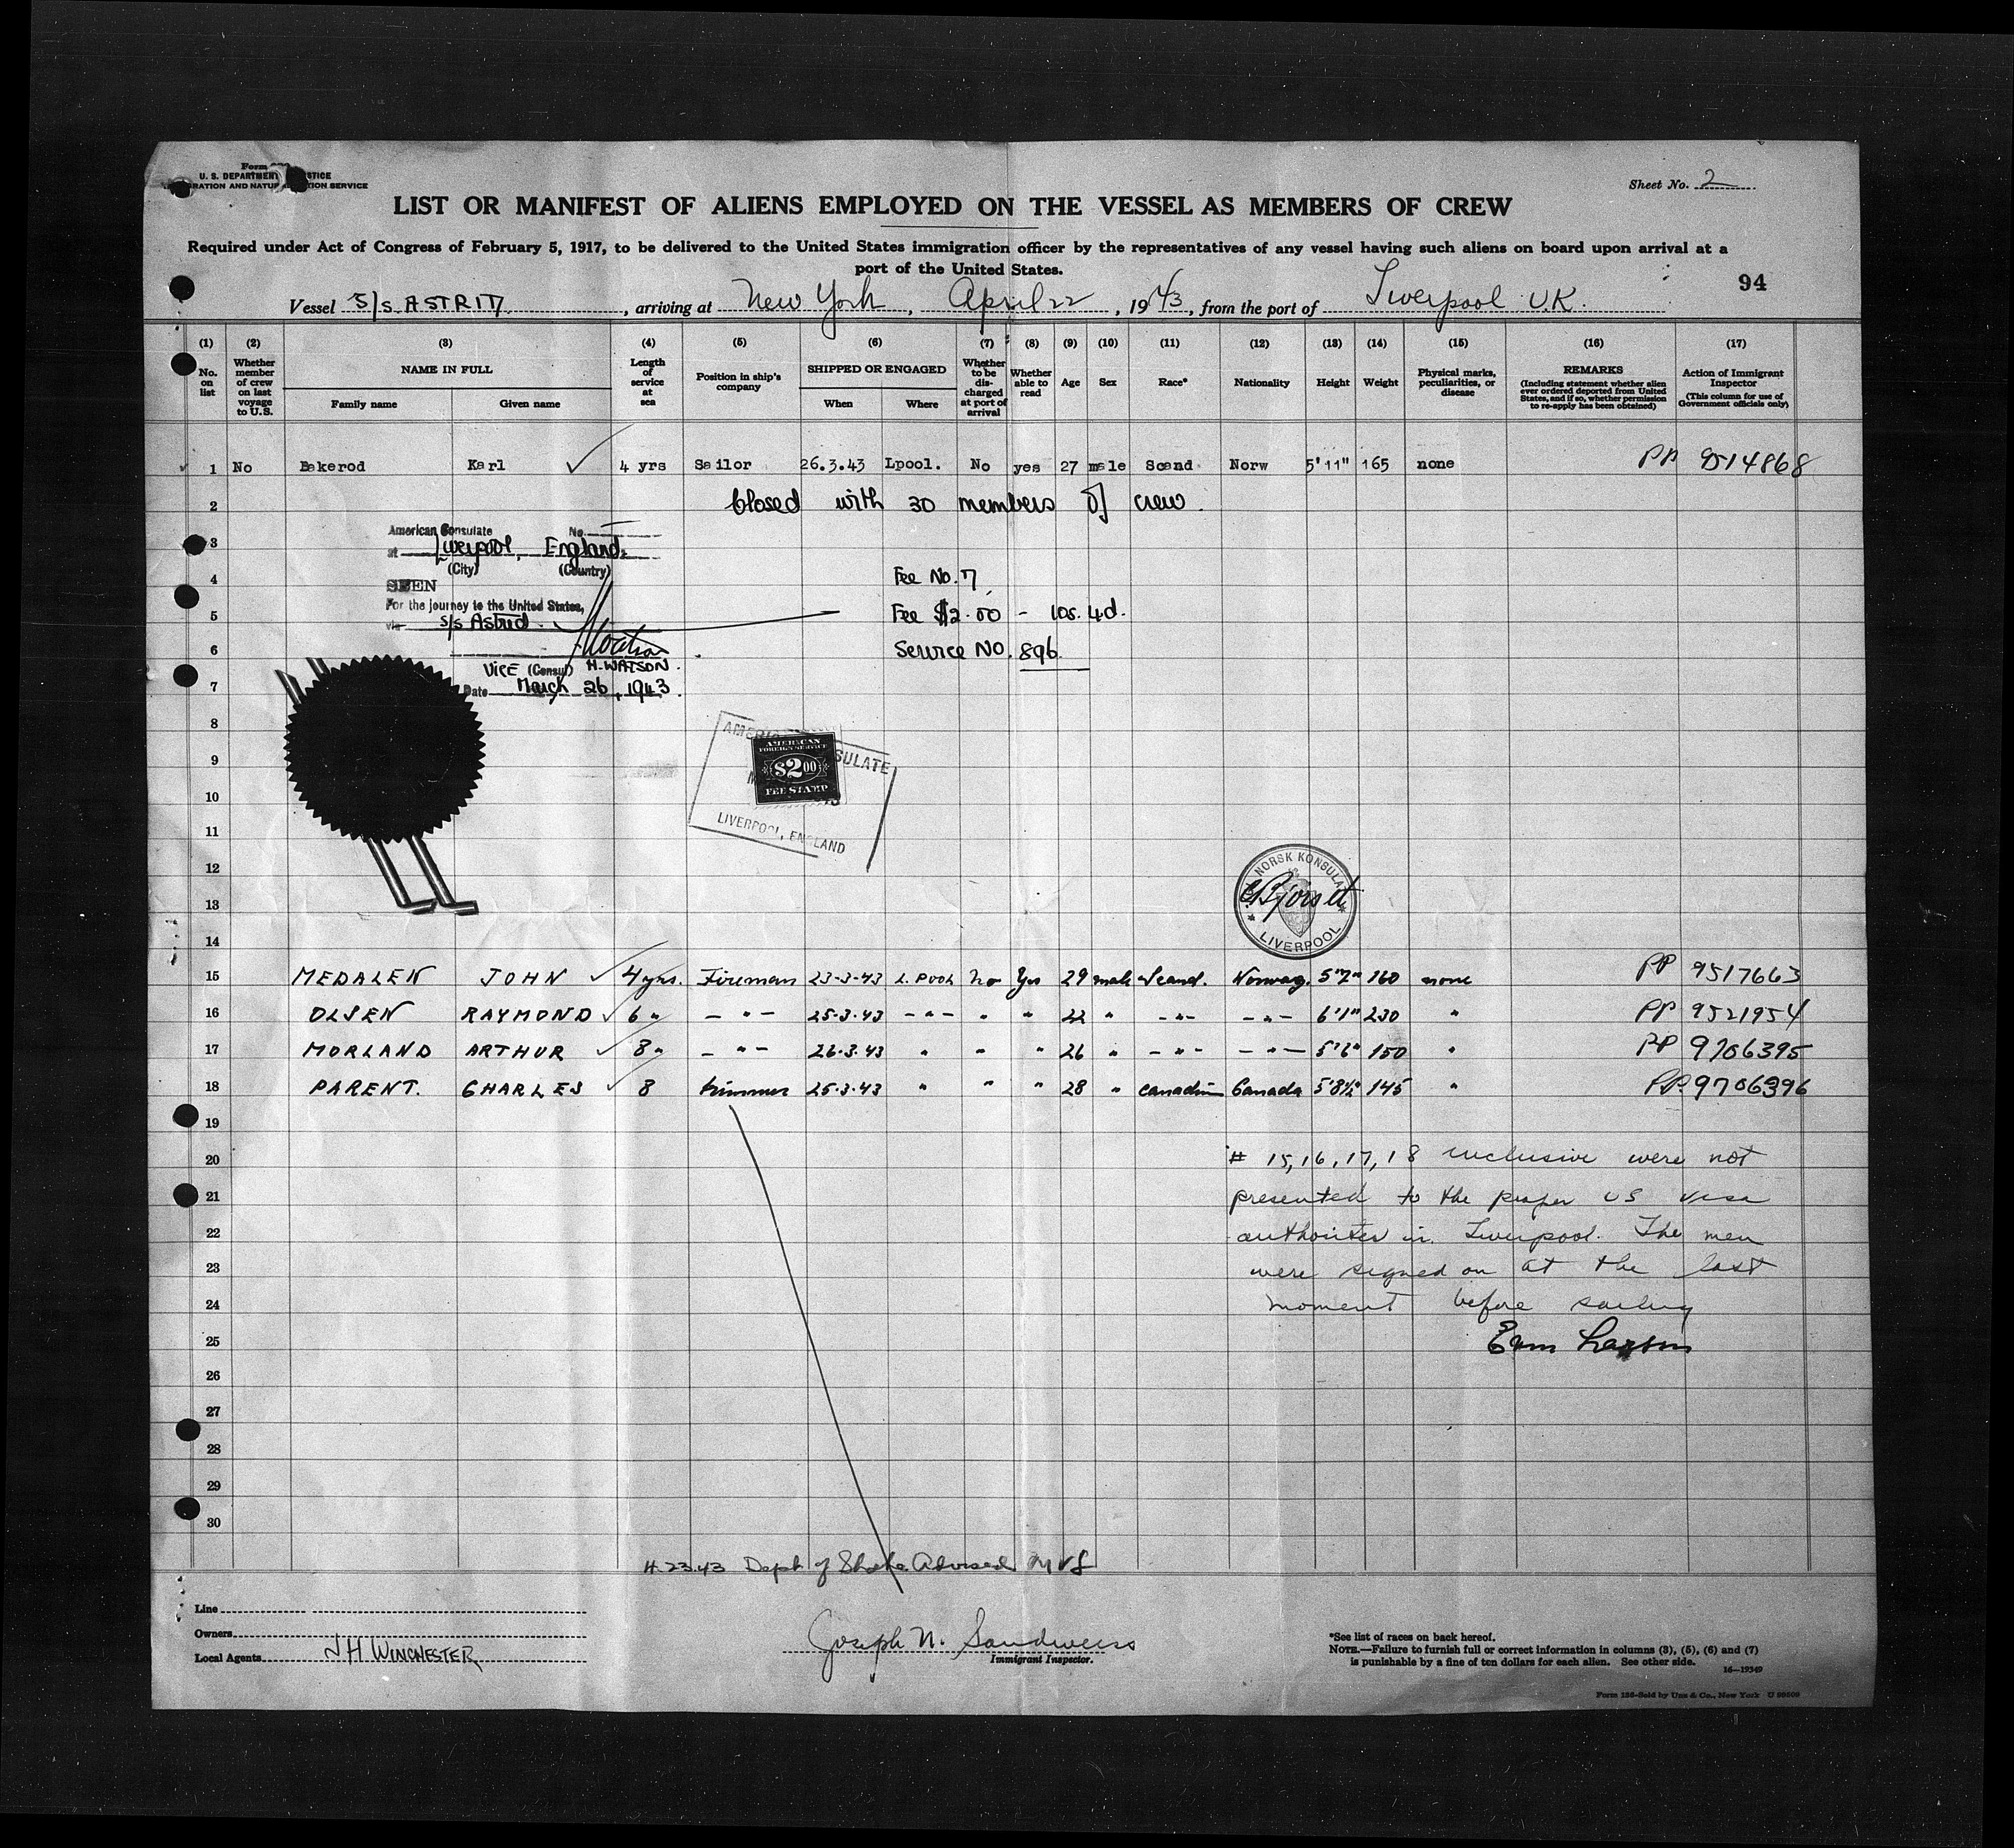 Form
U. S. DEPARTMENT STICE
RATION AND NATUR TION SERVICE
Sheet No. 2
LIST OR MANIFEST OF ALIENS EMPLOYED ON THE VESSEL AS MEMBERS OF CREW
Required under Act of Congress of February 5, 1917, to be delivered to the United States immigration officer by the representatives of any vessel having such aliens on board upon arrival at a
port of the United States.
94
Vessel S/s ASTRID, arriving at New York, April 22, 1943, from the port of Liverpool U.K.
(1) (2) (3) (4) (5) (6) (7) (8) (9) (10) (11) (12) (13) (14) (15) (16) (17)
No. on list
Whether member of crew on last voyage to U.S.
NAME IN FULL
Family name Given name
Length of service at sea
Position in ship's company
SHIPPED OR ENGAGED
When Where
Whether to be discharged at port of arrival
Whether able to read
Age
Sex
Race*
Nationality
Height
Weight
Physical marks, peculiarities, or disease
REMARKS
(Including statement whether alien ever ordered deported from United States, and if so, whether permission to re-apply has been obtained)
Action of Immigrant Inspector
(This column for use of Government officials only)
1 No Bakerod Karl 4 yrs Sailor 26.3.43 Lpool. No yes 27 male Scand Norw 5'11" 165 none PP 9514868
2 Closed with 30 members of crew.
American Consulate No.
3 at Liverpool, England.
(City) (Country)
4 SEEN Fee No. 7
For the journey to the United States,
5 via s/s Astrid Fee $2.00 - 10s. 4d.
6 Watson Service No. 896
Vice (Consul) H. WATSON.
7 Date March 26, 1943.
8
AMERI SULATE
AMERICAN
FOREIGN SERVICE
9 $2.00
FEE STAMP
10
11 LIVERPOOL, ENGLAND
12 NORSK KONSULAT
13
LIVERPOOL
14
15 MEDALEN JOHN 4 yrs. Fireman 23-3-43 L. POOL No Yes 29 male Scand. Norway. 5'7" 160 none PP 9517663
16 OLSEN RAYMOND 6 " - " - 25.3.43 - " - " " 22 " - " - - " - 6'1" 230 " PP 9521954
17 MORLAND ARTHUR 8 " - " - 26.3.43 " " " 26 " - " - - " - 5'6" 150 " PP 9706395
18 PARENT. CHARLES 8 trimmer 25.3.43 " " " 28 " Canadian Canada 5'8½" 145 " PP. 9706396
19
20 # 15, 16, 17, 18 inclusive were not
21 presented to the proper US visa
22 authorites in Liverpool. The men
23 were signed on at the last
24 moment before sailing
25
26
27
28
29
30
4.23.43 Dept of State Advised MVS
Line
Owners
Local Agents J H WINCHESTER
Joseph N. Sandweiss
Immigrant Inspector.
*See list of races on back hereof.
NOTE.—Failure to furnish full or correct information in columns (3), (5), (6) and (7)
is punishable by a fine of ten dollars for each alien. See other side.
16—19349
Form 186-Sold by Unz & Co., New York